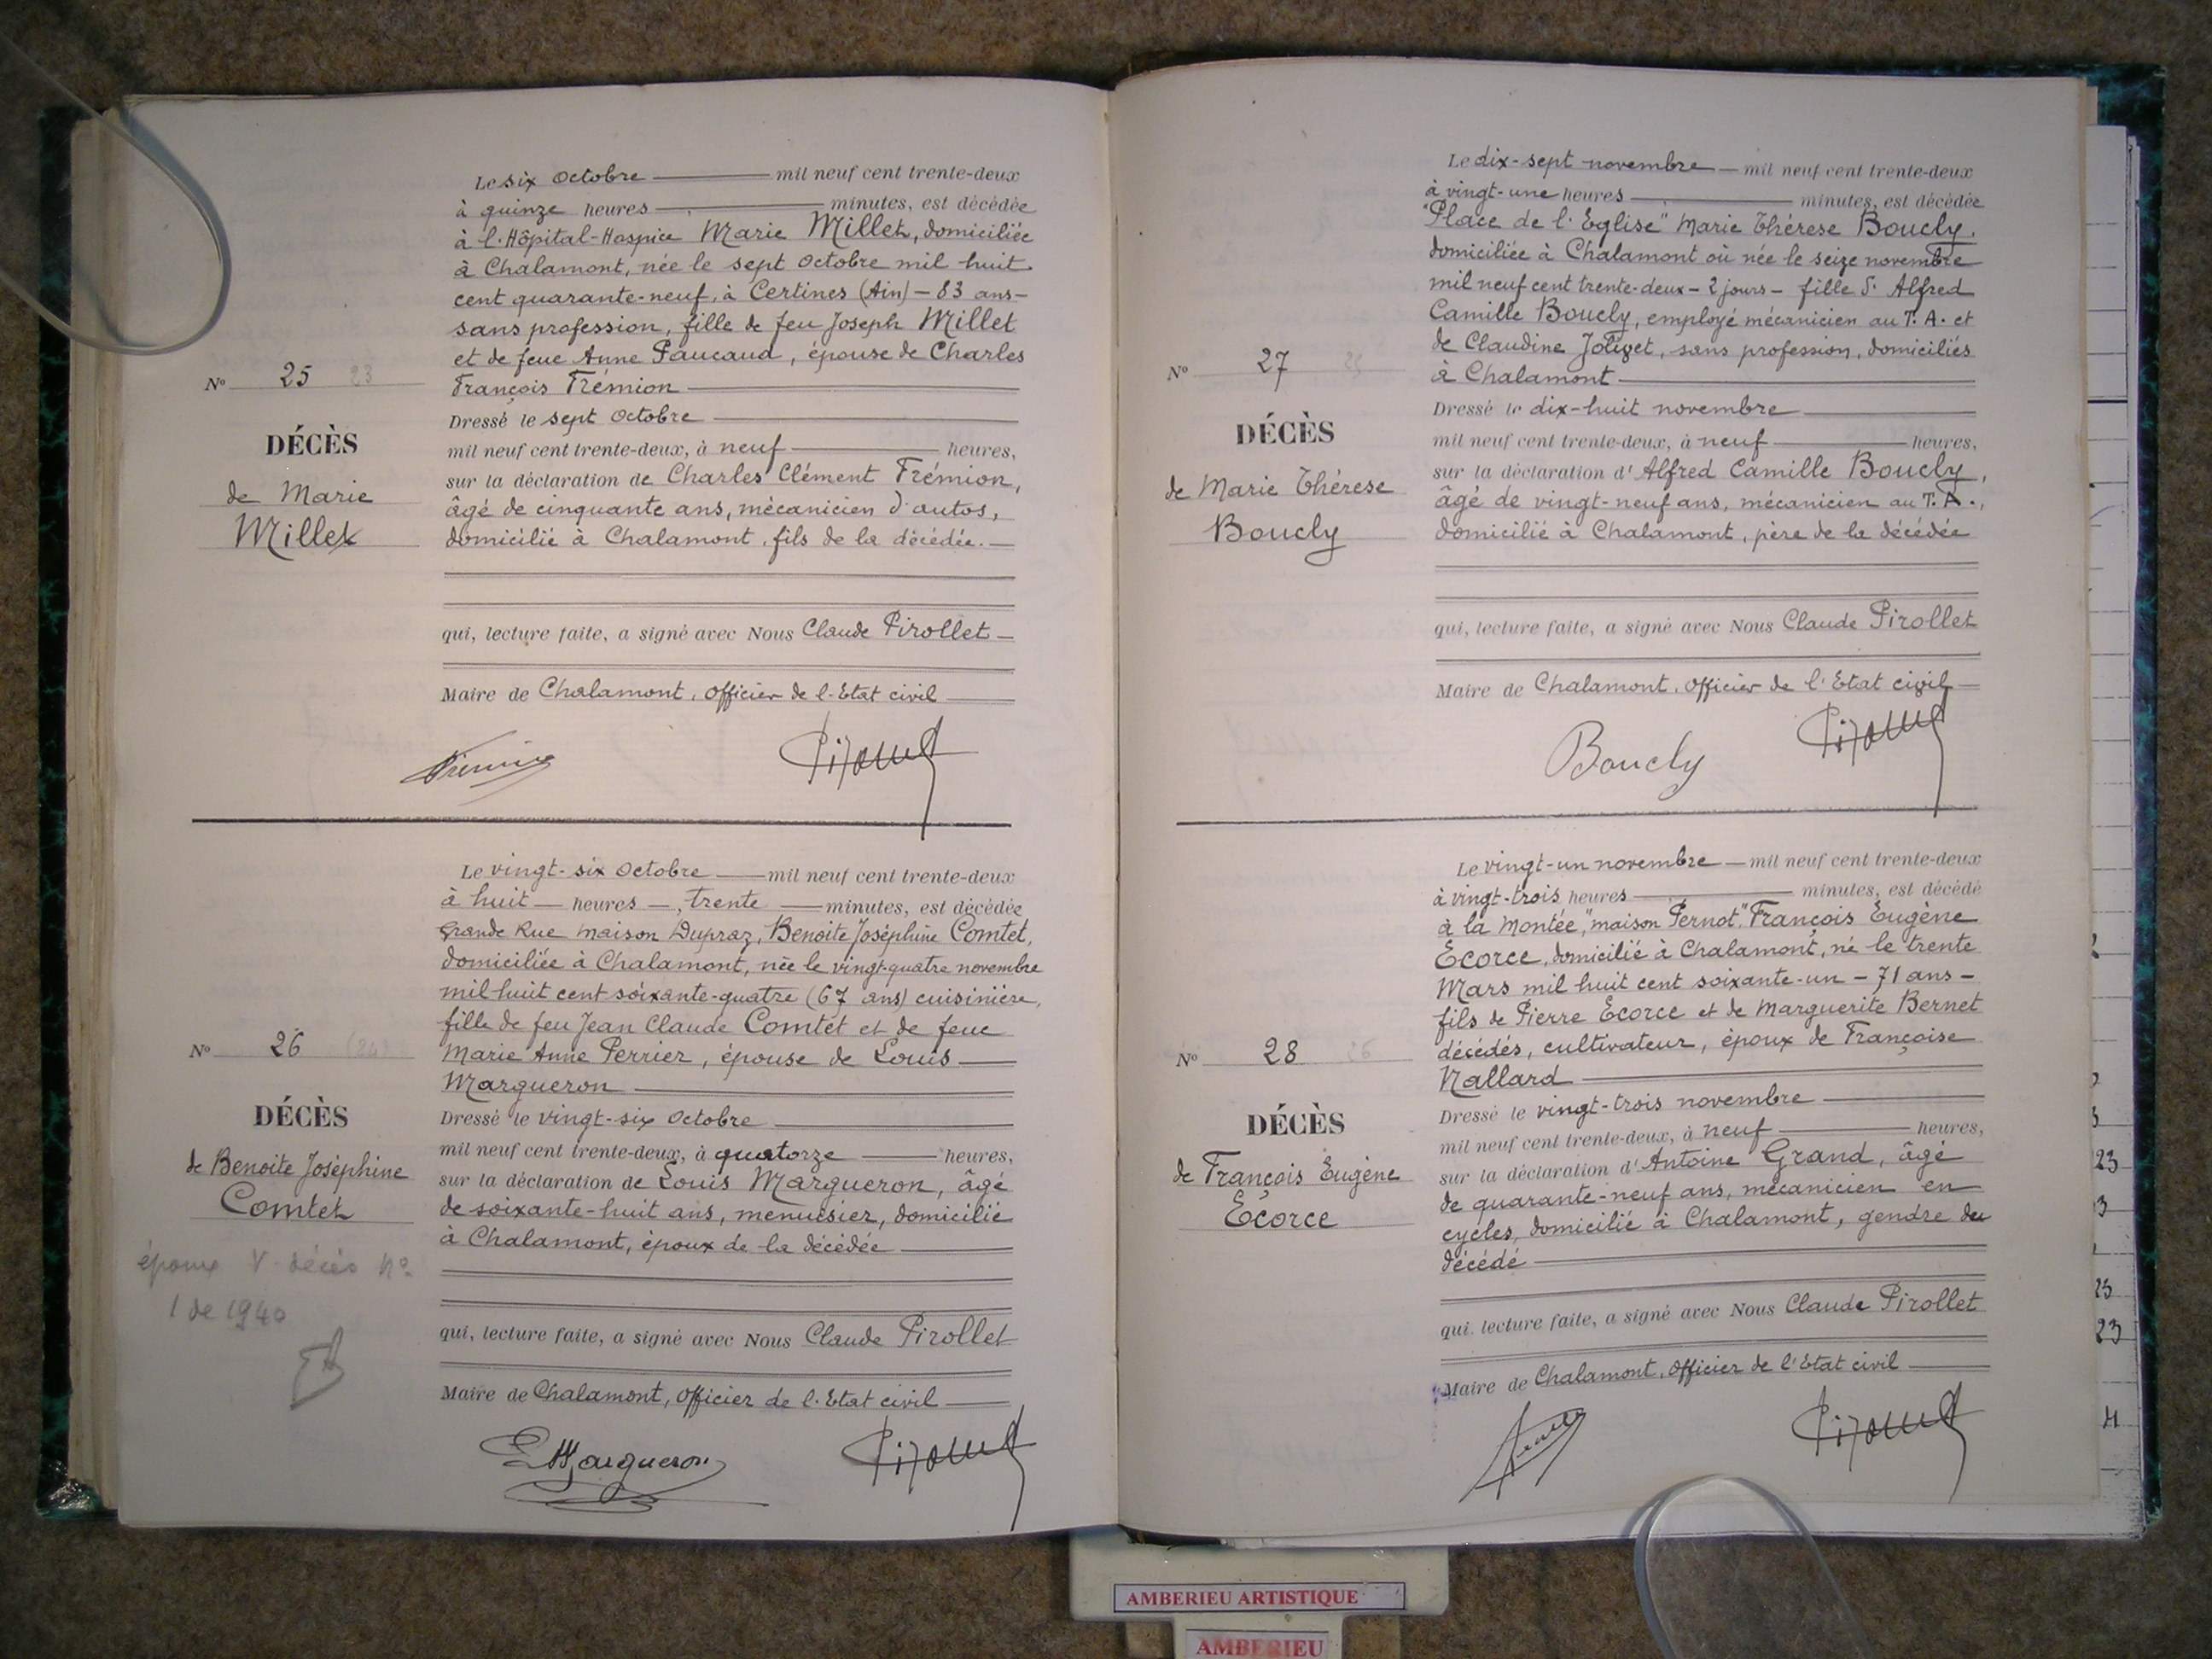 Le six Octobre mil neuf cent trente-deux
à quinze heures minutes, est décédée
à l'Hôpital-Hospice Marie Millet, domiciliée
à Chalamont, née le sept Octobre mil huit
cent quarante-neuf, à Certines (Ain) - 83 ans -
sans profession, fille de feu Joseph Millet
et de feue Anne Paucaud, épouse de Charles
François Frémion
N° 25 23
DÉCÈS
de Marie
Millet
Dressé le sept Octobre
mil neuf cent trente-deux, à neuf heures,
sur la déclaration de Charles Clément Frémion,
âgé de cinquante ans, mécanicien d'autos,
domicilié à Chalamont, fils de la décédée.
qui, lecture faite, a signé avec Nous Claude Pirollet
Maire de Chalamont, Officier de l'Etat civil
Le vingt-six Octobre mil neuf cent trente-deux
à huit heures, trente minutes, est décédée
Grande Rue maison Dupraz, Benoite Joséphine Comtet,
domiciliée à Chalamont, née le vingt-quatre novembre
mil huit cent soixante-quatre (67 ans) cuisinière,
fille de feu Jean Claude Comtet et de feue
Marie Anne Perrier, épouse de Louis
Margueron
N° 26 (24)
DÉCÈS
de Benoite Joséphine
Comtet
époux V. décès N°
1 de 1940
Dressé le vingt-six Octobre
mil neuf cent trente-deux, à quatorze heures,
sur la déclaration de Louis Margueron, âgé
de soixante-huit ans, menuisier, domicilié
à Chalamont, époux de la décédée
qui, lecture faite, a signé avec Nous Claude Pirollet
Maire de Chalamont, Officier de l'Etat civil
Margueron
Le dix-sept novembre mil neuf cent trente-deux
à vingt-une heures minutes, est décédée
"Place de l'Eglise" Marie Thérese Boucly,
domiciliée à Chalamont où née le seize novembre
mil neuf cent trente-deux - 2 jours - fille d'Alfred
Camille Boucly, employé mécanicien au T. A. et
de Claudine Jolivet, sans profession, domiciliés
à Chalamont
N° 27 25
DÉCÈS
de Marie Thérese
Boucly
Dressé le dix-huit novembre
mil neuf cent trente-deux, à neuf heures,
sur la déclaration d'Alfred Camille Boucly,
âgé de vingt-neuf ans, mécanicien au T. A.,
domicilié à Chalamont, père de la décédée
qui, lecture faite, a signé avec Nous Claude Pirollet
Maire de Chalamont, Officier de l'Etat civil
Boucly
Le vingt-un novembre mil neuf cent trente-deux
à vingt-trois heures minutes, est décédé
à la Montée, "maison Pernot", François Eugène
Ecorce, domicilié à Chalamont, né le trente
Mars mil huit cent soixante-un - 71 ans -
fils de Pierre Ecorce et de Marguerite Bernet
décédés, cultivateur, époux de Françoise
Nallard
N° 28 26
DÉCÈS
de François Eugène
Ecorce
Dressé le vingt-trois novembre
mil neuf cent trente-deux, à neuf heures,
sur la déclaration d'Antoine Grand, âgé
de quarante-neuf ans, mécanicien en
cycles, domicilié à Chalamont, gendre du
décédé
qui, lecture faite, a signé avec Nous Claude Pirollet
Maire de Chalamont, Officier de l'Etat civil
23
3
25
23
AMBERIEU ARTISTIQUE
AMBERIEU